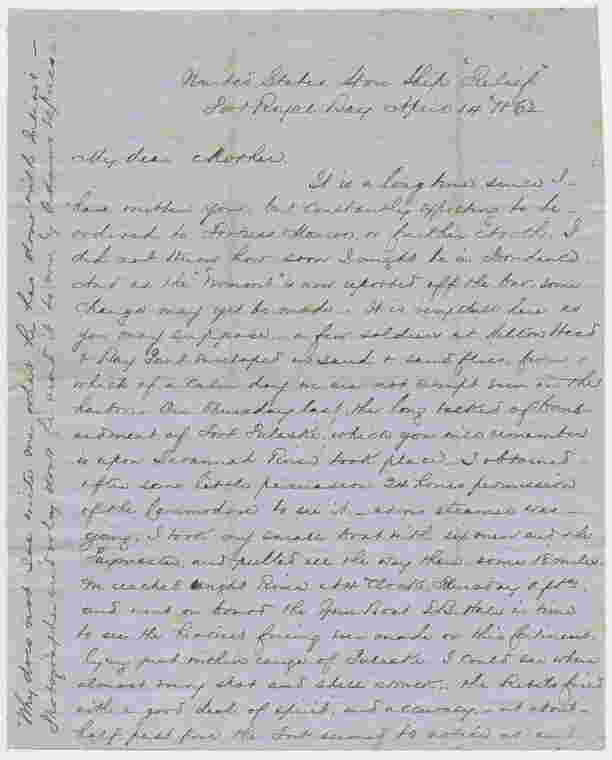 United States Store Ship "Relief"
Port Royal Bay April 14th 62
My dear Mother
It is a long time since I
have written you, but constantly expecting to be
ordered to Fortress Monroe, or farther North, I
did not know how soon I might be in
And as the "Vermont" is now reported off the bar, some
change may yet be made. It is very dull here as
you may suppose a few soldiers at Hilton Head
& Bay Point enveloped in sand & sand flies, from
which of a calm day we are not exempt even in the
harbor. On Thursday last, the long talked of bomb-
ardment of Fort Pulaski, which you will remember
is upon Savannah River took place. I obtained
after some little persuasion 24 hours permission
of the Commodore to see it as no steamer was
going, I took my small boat with six men and the
Paymaster, and pulled all the way there some 18 miles
We reached Wright River at 4 O'Clock, Thursday
and went on board the Gun Boat E.B. Hale in time
to see the heaviest firing ever made on this Continent.
lying just within range of Pulaski I could see where
almost every shot and shell struck. The Rebels fired
with a good deal of spirit, and accuracy at about
half past five the Fort seemed to
Why does not Sue write me, what he has done with
Photographs and why don't he send it to me by Adams Express